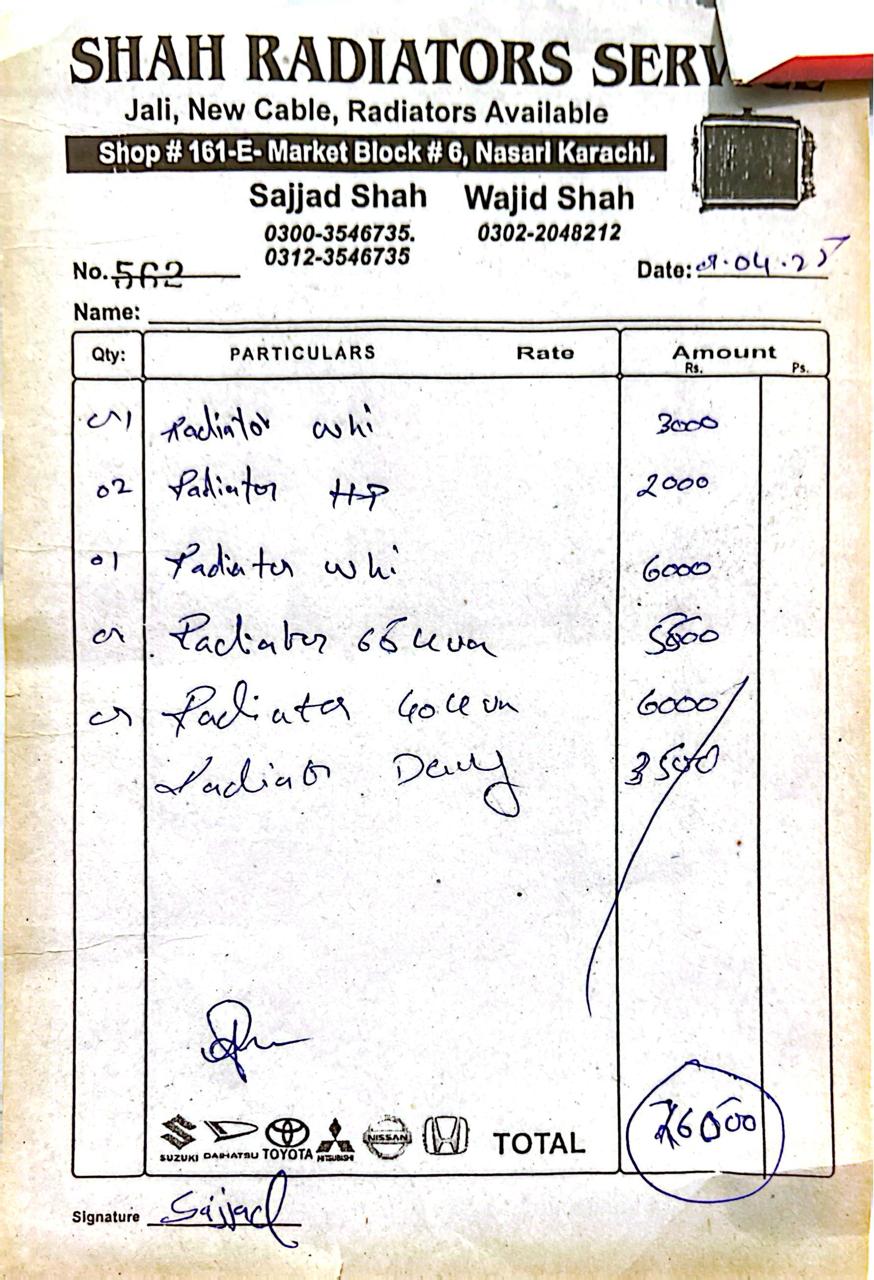 SHAH RADIATORS SERV
Jali, New Cable, Radiators Available
Shop # 161-E- Market Block # 6, Nasari Karachi.
Sajjad Shah Wajid Shah
0300-3546735. 0302-2048212
0312-3546735
No. 562 Date: 04.25
Name:
Qty: PARTICULARS Rate Amount
Rs. Ps.
01 Radiator whi 3000
02 Radiator HP 2000
01 Radiator whi 6000
Radiator 65 kva 5500
Radiator 60 kva 6000
Radiator 3500
SUZUKI DAIHATSU TOYOTA MITSUBISHI NISSAN TOTAL 26000
Signature Sajjad